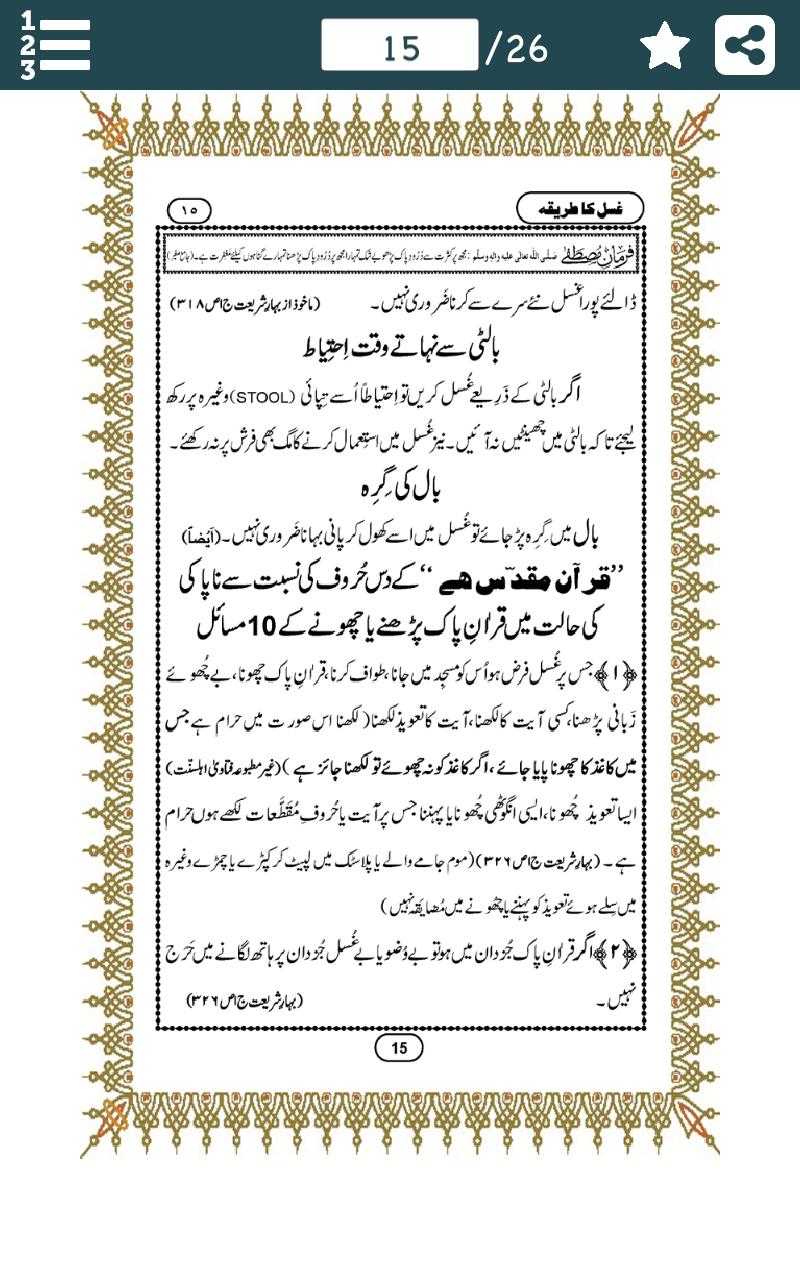 1
2
3
15 /26
غسل کا طریقہ
١٥
فرمانِ مُصطَفٰے صلی اللہ تعالیٰ علیہ والہ وسلم : مجھ پر کثرت سے دُرُودِ پاک پڑھو بے شک تمہارا مجھ پر دُرُودِ پاک پڑھنا تمہارے گناہوں کیلئے مغفرت ہے۔ (جامع صغیر)
ڈالئے پورا غسل نئے سرے سے کرنا ضَروری نہیں۔ (ماخوذ از بہارِ شریعت ج۱ ص ۳۱۸)
بالٹی سے نہاتے وقت اِحتِیاط
اگر بالٹی کے ذَرِیعے غُسل کریں تو اِحتیاطاً اُسے تِپائی (STOOL) وغیرہ پر رکھ
لیجئے تا کہ بالٹی میں چھینٹیں نہ آئیں۔ نیز غُسل میں استِعمال کرنے کا مگ بھی فرش پر نہ رکھئے۔
بال کی گِرِہ
بال میں گِرِہ پڑ جائے تو غُسل میں اسے کھول کر پانی بہانا ضَروری نہیں۔ (اَیضاً)
’’قرآن مقدّس ھے‘‘ کے دس حُروف کی نسبت سے ناپاکی
کی حالت میں قراٰنِ پاک پڑھنے یا چھونے کے 10 مسائل
﴿۱﴾ جس پر غُسل فرض ہو اُس کو مسجِد میں جانا، طواف کرنا، قراٰنِ پاک چھونا، بے چُھوئے
زَبانی پڑھنا، کسی آیت کا لکھنا، آیت کا تعویذ لکھنا (لکھنا اس صورت میں حرام ہے جس
میں کاغذ کا چھونا پایا جائے، اگر کاغذ کو نہ چھوئے تو لکھنا جائز ہے) (غیر مطبوعہ فتاویٰ اہلسنّت)
ایسا تعویذ چُھونا، ایسی انگوٹھی چُھونا یا پہننا جس پر آیت یا حُروفِ مُقَطَّعات لکھے ہوں حرام
ہے۔ (بہارِ شریعت ج۱ ص ۳۲۶) (موم جامے والے یا پلاسٹک میں لپیٹ کر کپڑے یا چمڑے وغیرہ
میں سِلے ہوئے تعویذ کو پہننے یا چھونے میں مُضایَقہ نہیں)
﴿۲﴾ اگر قراٰنِ پاک جُزدان میں ہو تو بے وُضو یا بے غُسل جُزدان پر ہاتھ لگانے میں حَرَج
نہیں۔ (بہارِ شریعت ج۱ ص ۳۲۶)
15